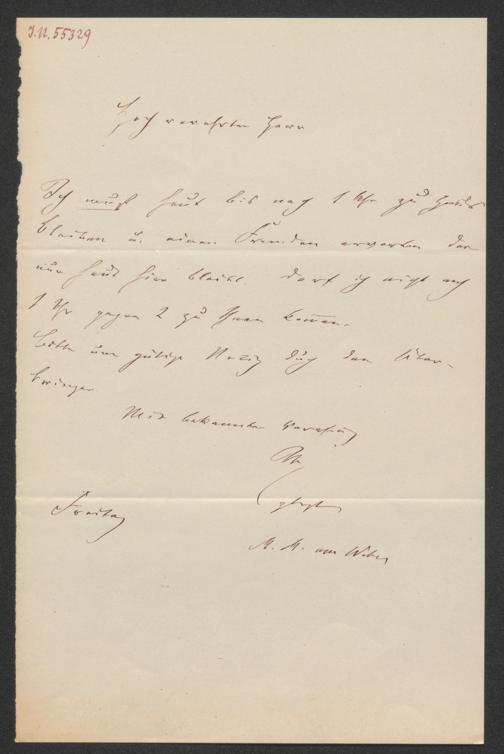 J.N. 55329
Hochverehrter Herr
Ich muß heut bis nach 1 Uhr zu Hause
bleiben u. einen Fremden erwarten der
nur heut hier bleibt. Darf ich nicht nach
1 Uhr gegen 2 zu Ihnen kommen.
Bitte um gütige Notiz durch den Über-
bringer
Mit bekannter Verehrung
Ihr
Freitag
M. M. von Weber